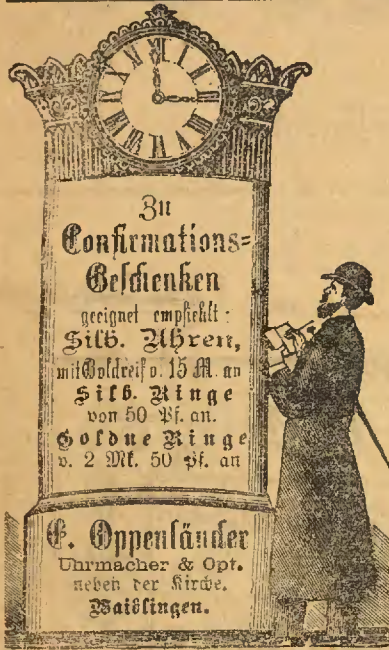 Zu
Confirmations-
Geschenken
geeignet empfiehlt:
Silb. Uhren,
mit Goldreif v. 15 M. an
Silb. Ringe
von 50 Pf. an.
Goldne Ringe
v. 2 Mk. 50 Pf. an
E. Oppenländer
Uhrmacher & Opt.
neben der Kirche.
Waiblingen.